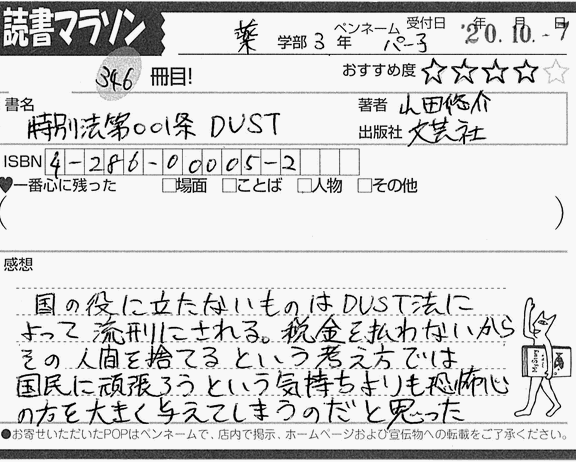 読書マラソン
薬 学部 3 年 ペンネーム パー子 受付日 年 月 日 '20.10.-7
346 冊目! おすすめ度 ★★★★☆
書名 特別法第001条 DUST 著者 山田悠介
出版社 文芸社
ISBN 4-286-00005-2
♥一番心に残った □場面 □ことば □人物 □その他
( )
感想
国の役に立たないものはDUST法に
よって流刑にされる。税金を払わないから
その人間を捨てるという考え方では
国民に頑張ろうという気持ちよりも恐怖心
の方を大きく与えてしまうのだと思った
●お寄せいただいたPOPはペンネームで、店内で掲示、ホームページおよび宣伝物への転載をご了承ください。